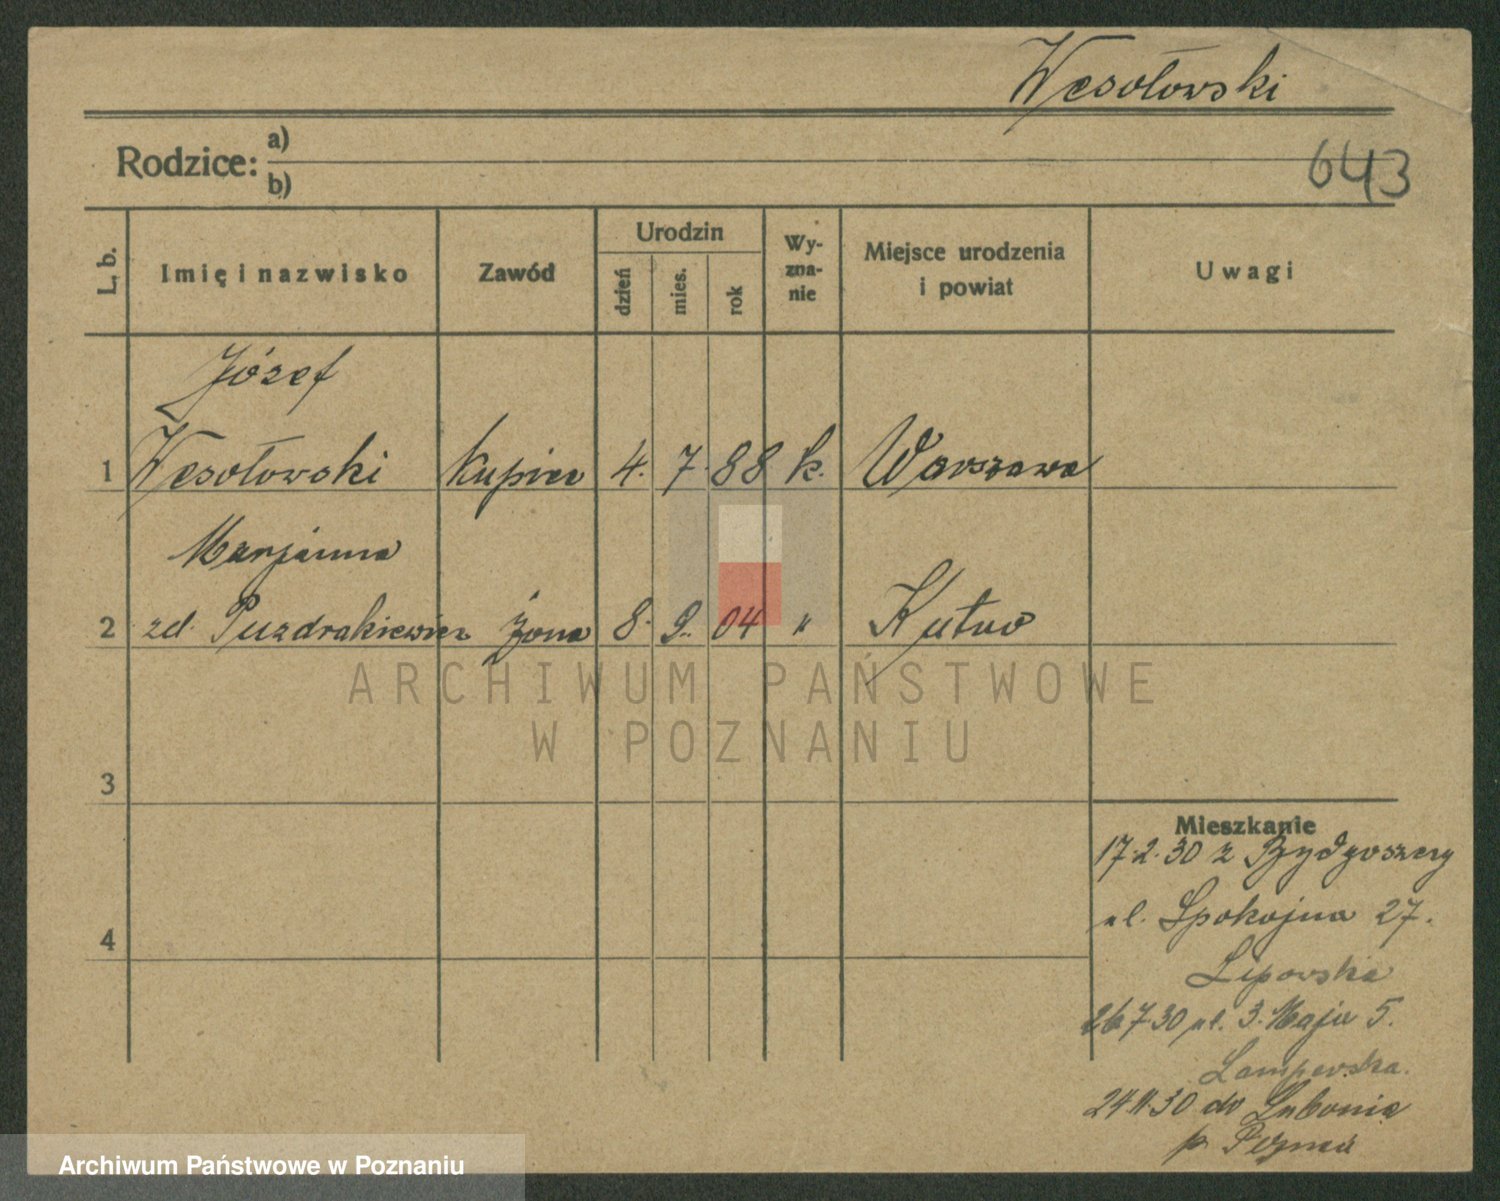 Wesołowski
Rodzice: a)
b)
643
L. b.
Imię i nazwisko
Zawód
Urodzin
dzień
mies.
rok
Wy-
zna-
nie
Miejsce urodzenia
i powiat
Uwagi
Józef
1 Wesołowski kupiec 4. 7. 88 k. Warszawa
Marjanna
2 zd. Puzdrakiewicz żona 8. 9. 04 " Kutno
ARCHIWUM PAŃSTWOWE
W POZNANIU
3
4
Mieszkanie
17.2.30 z Bydgoszczy
ul. Spokojna 27.
Lipowska
26 7 30 ul. 3. Maja 5.
24.11.30 do Lubonia
p. Poznań
Archiwum Państwowe w Poznaniu